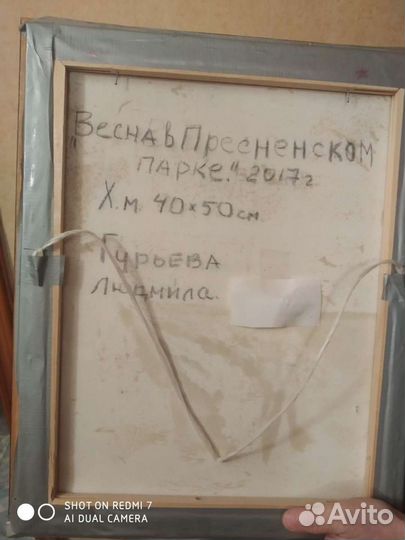 "Весна в Пресненском
парке." 2017г
Х.м. 40х50см
Гурьева
Людмила.
SHOT ON REDMI 7
AI DUAL CAMERA
Avito